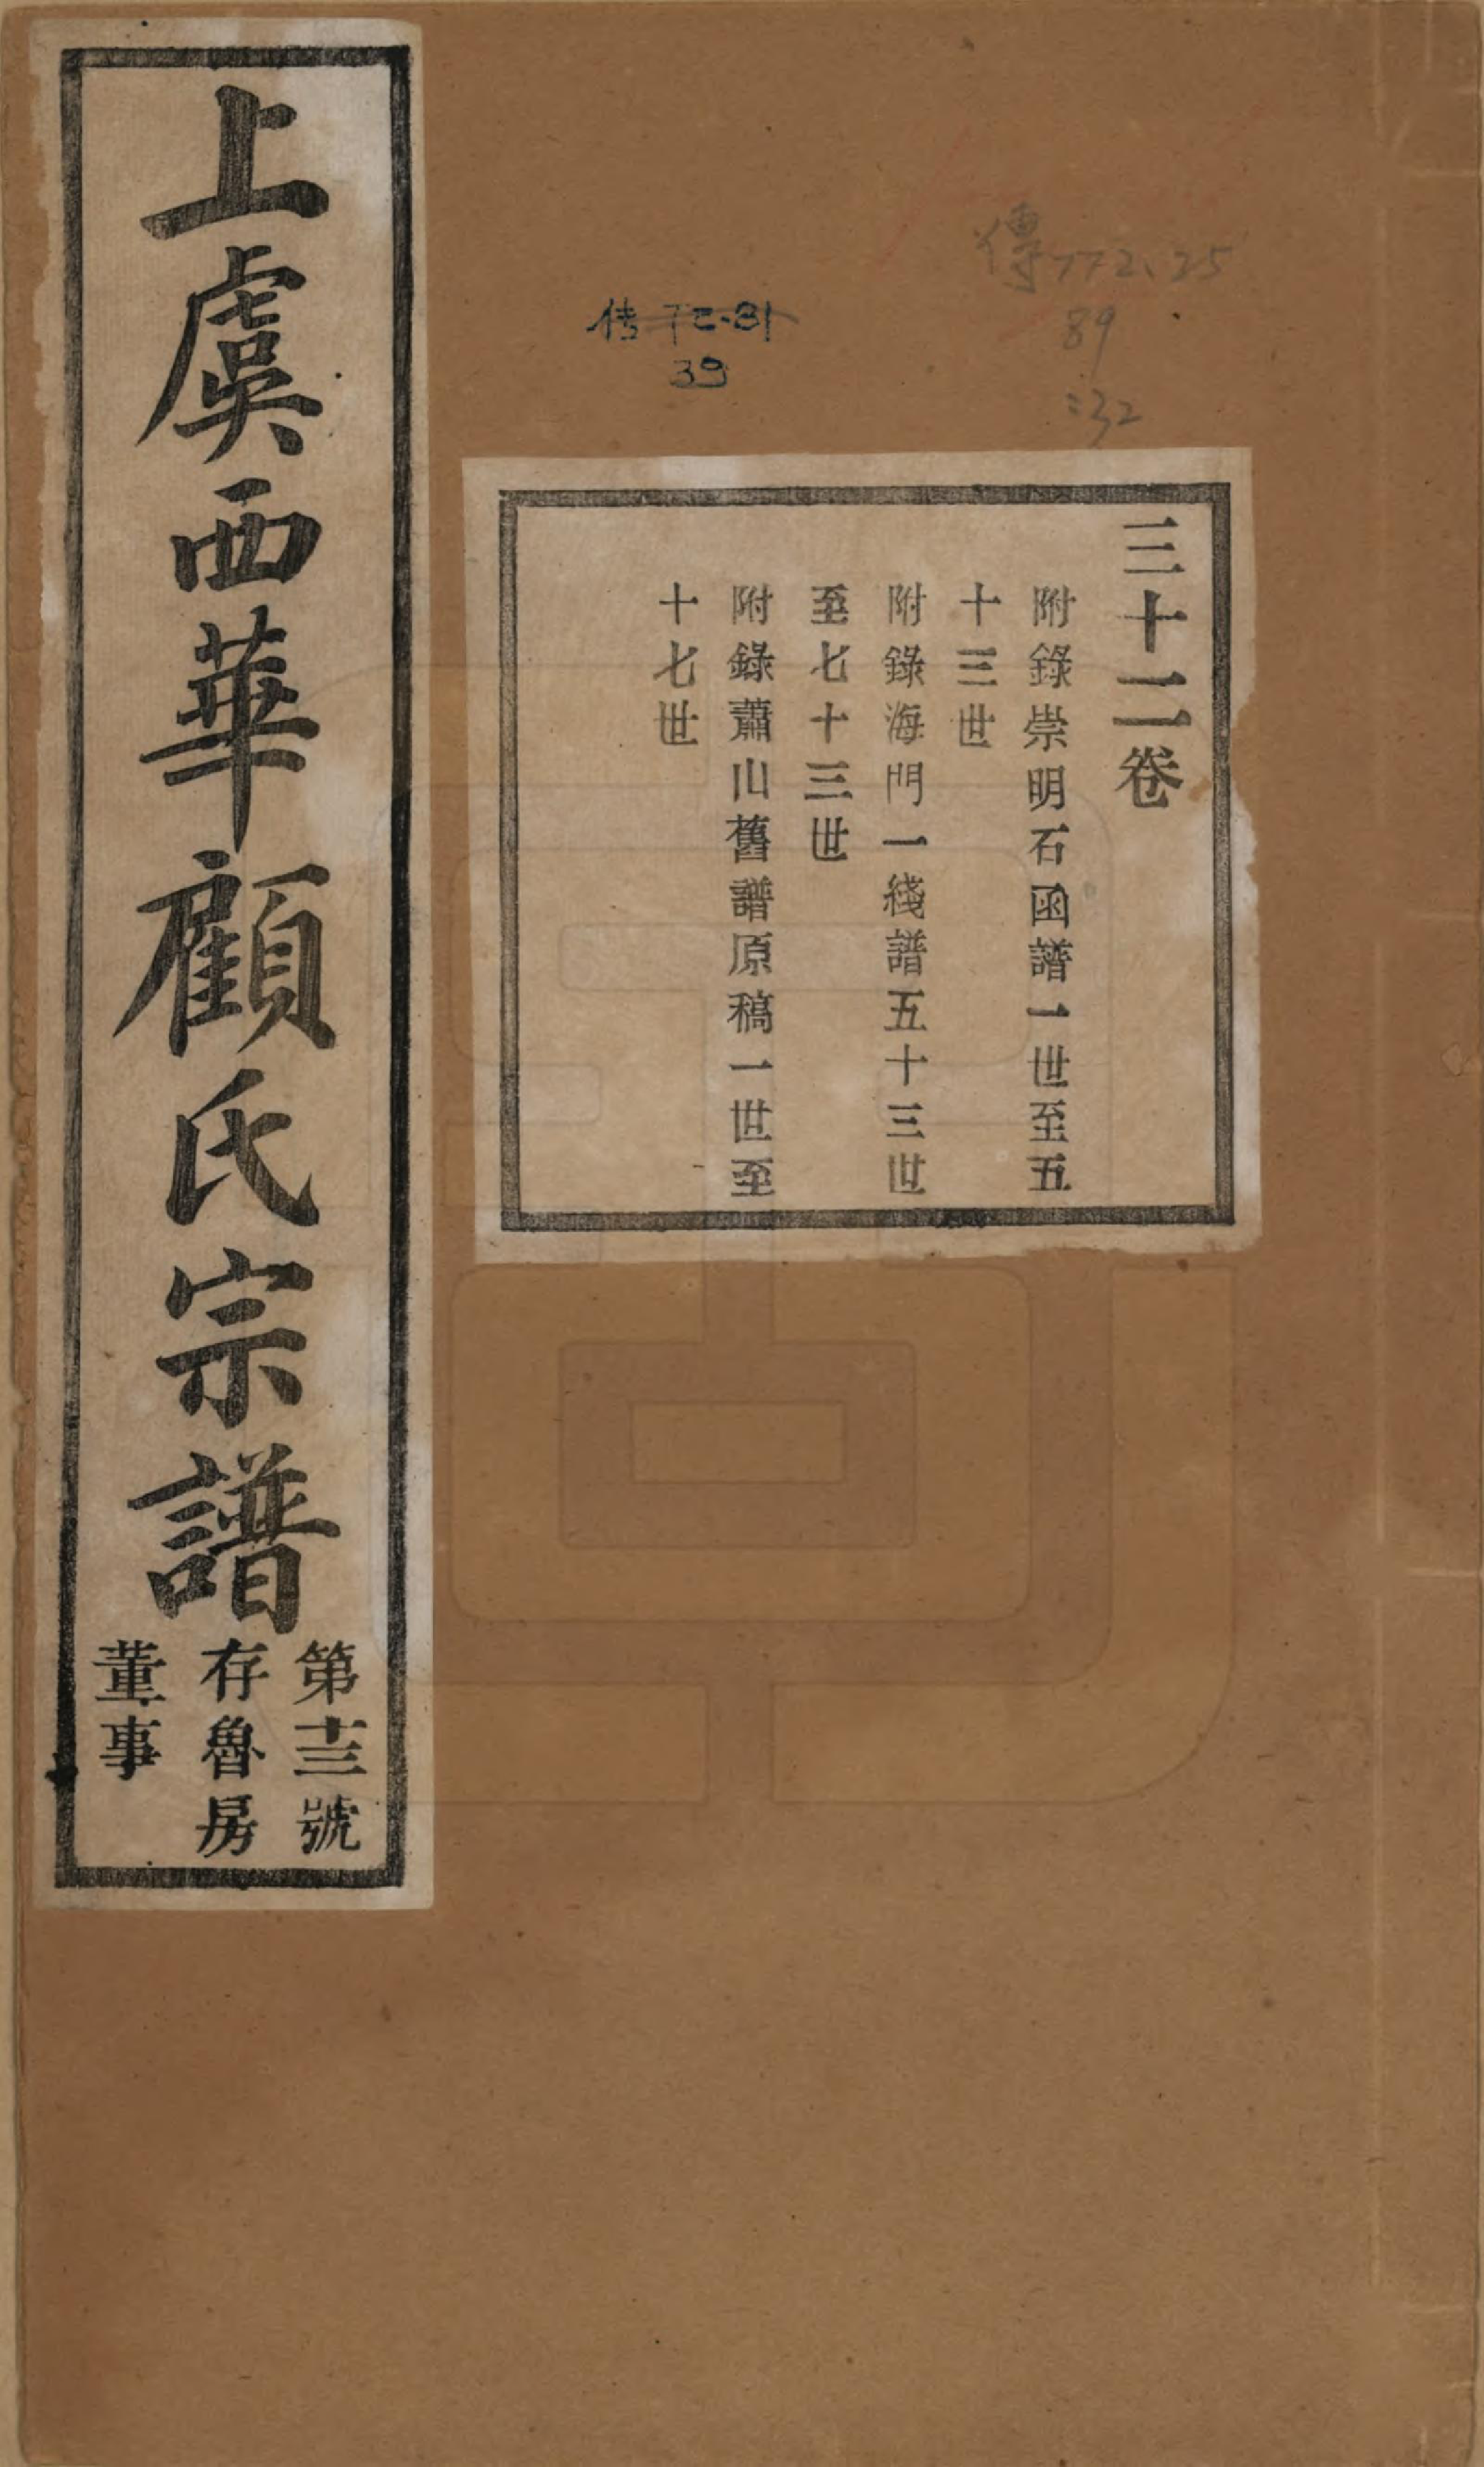 上虞西華顧氏宗譜
第十三號
存魯房
董事
三十二卷
附錄崇明石函譜一世至五
十三世
附錄海門一綫譜五十三世
至七十三世
附錄蕭山舊譜原稿一世至
十七世
傳772.25
89
:32
传
39